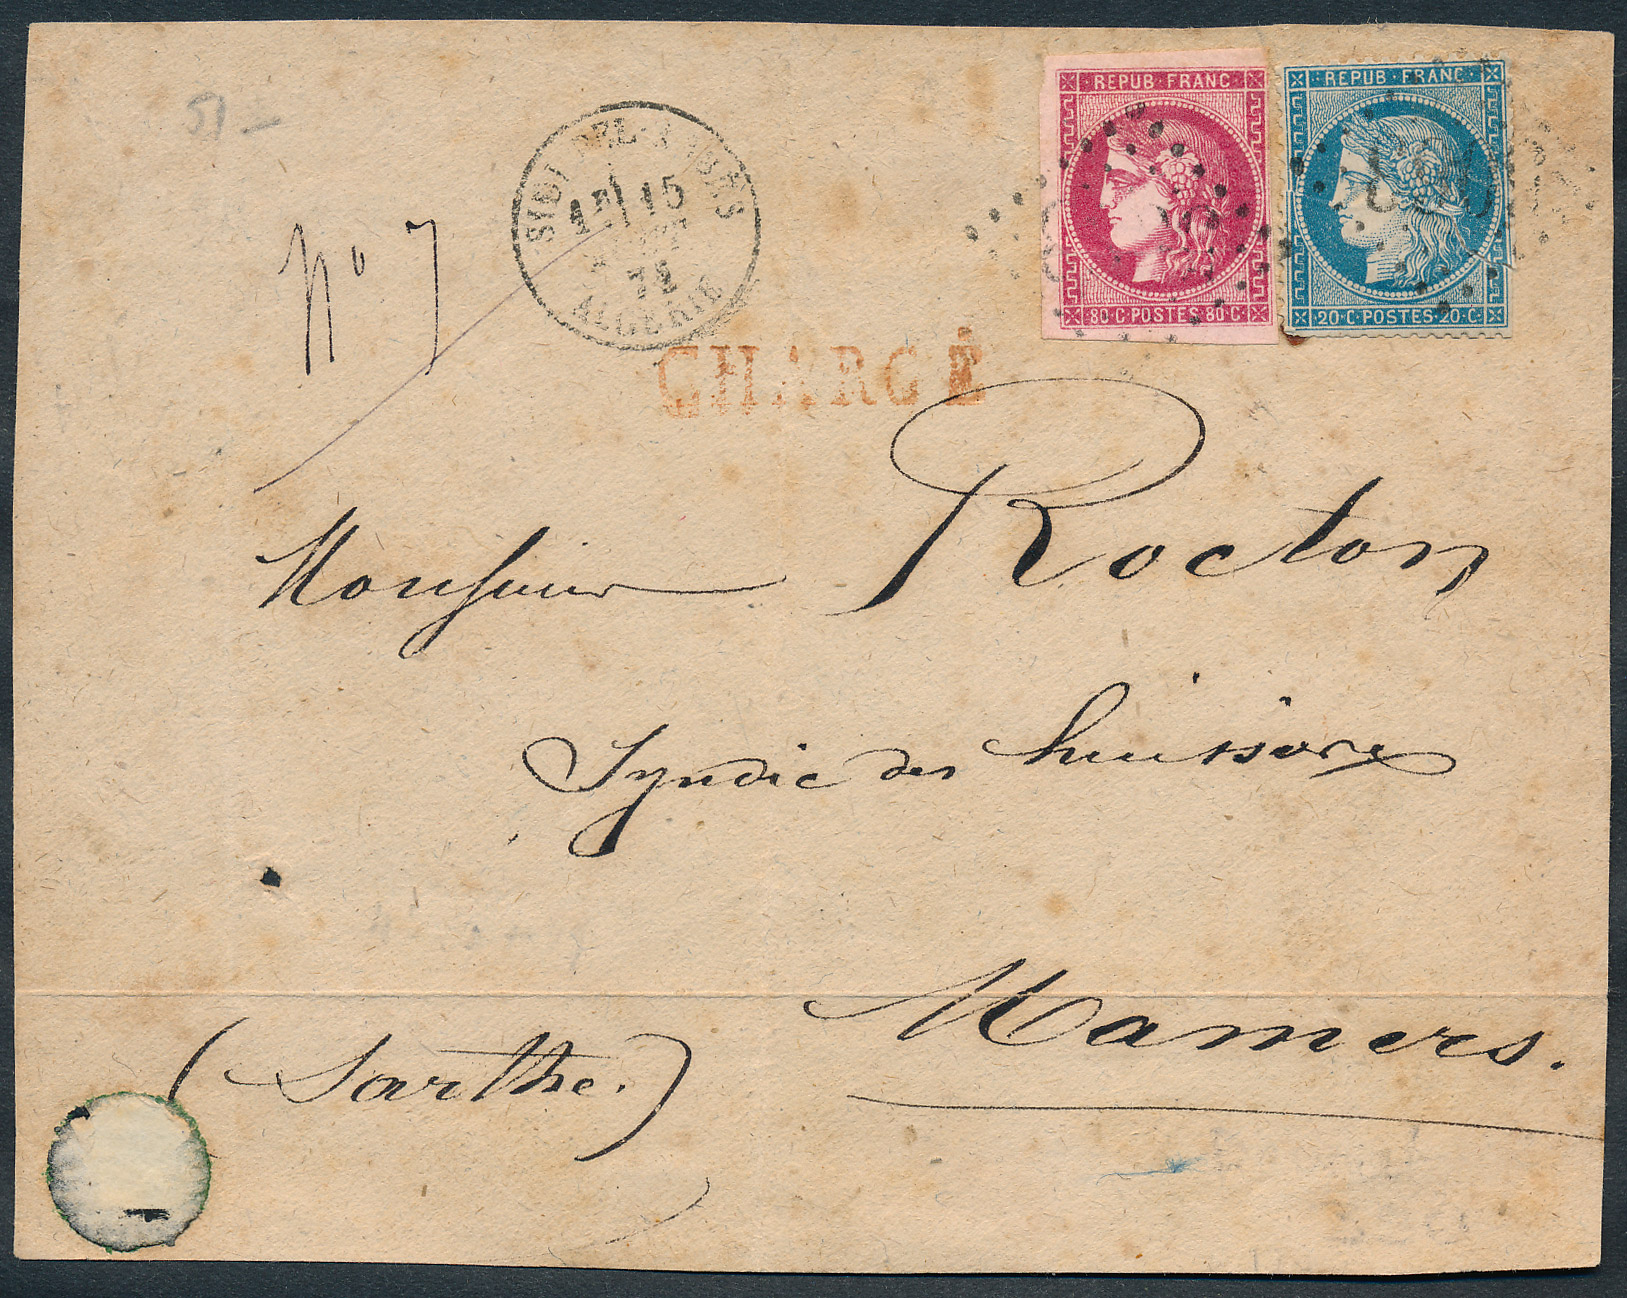 51 —
SIDI BEL-ABBÈS
1E 15
72
ALGÉRIE
REPUB·FRANC
80·C·POSTES·80·C
REPUB·FRANC
20·C·POSTES·20·C
No 7
CHARGÉ
Monsieur Rocton
Syndic des huissiers
Mamers.
(Sarthe.)